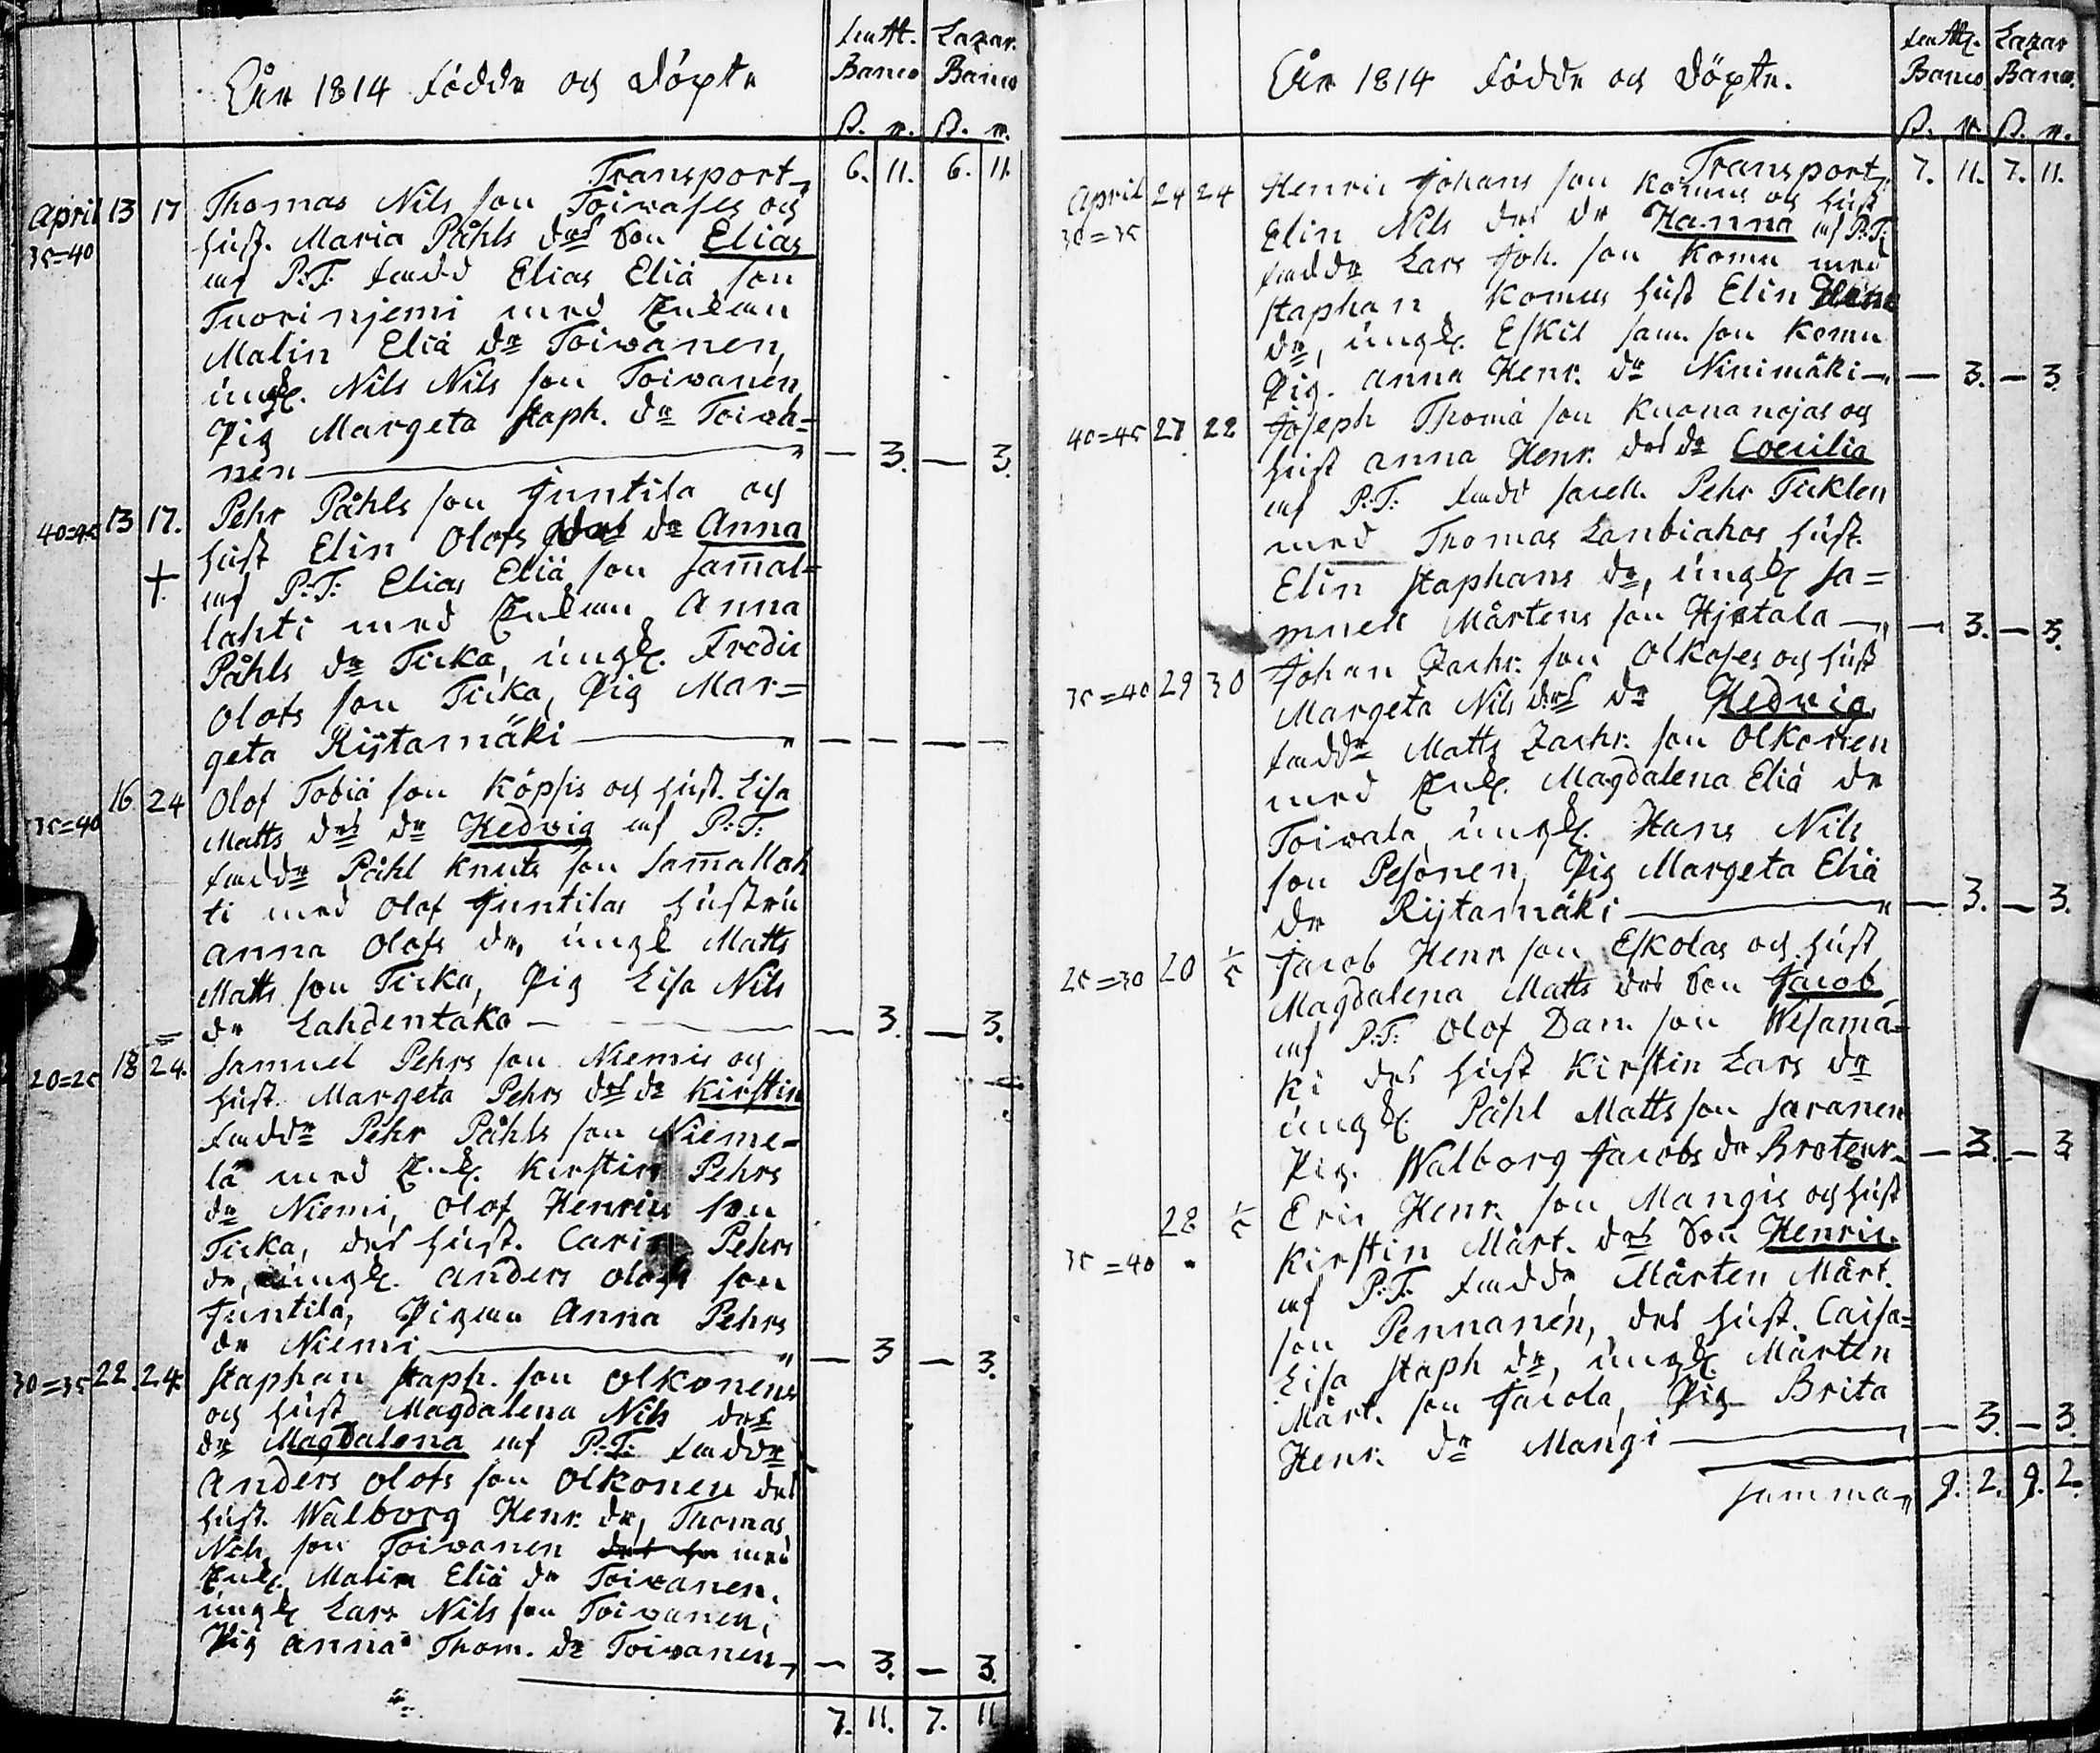 År 1814 födde och döpte
Banco Lazar. Banco
ß. r. ß. r.
Transport 6. 11. 6. 11.
April 13 17 Thomas Nils son Toiwases och
35=40 hust. Maria Påhls des Son Elias
inf P.T. fadd Elias Eliä son
Tuorinjemi med Enkan
Malin Eliä dr Toiwanen,
ungk. Nils Nils son Toiwanen
Pig Margeta Staph. dr Toiwa=
nen — 3. — 3.
40=45 13 17. Pehr Påhls son Juntila och
hust Elin Olofs dr Anna
† inf P.T. Elias Eliä son Sam̄al=
lahti med Enkan Anna
Påhls dr Ticka, ungk. Fredic
Olofs son Ticka, Pig Mar=
geta Rijtamäki — — — —
16 24 Olof Tobiä son Köpsis och hust. Lisa
35=40 Matts des dr Hedwig inf P.T.
faddr Påhl Knuts son Sam̄allah
ti med Olof Juntilas hustru
Anna Olofs dr, ungk Matts
Matts son Ticka, Pig Lisa Nils
dr Lahdentaka — 3. — 3.
20=25 18 24. Samuel Pehrs son Niemis och
hust. Margeta Pehrs des dr Kirstin
faddr Pehr Påhls son Nieme=
lä med Enk. Kirstin Pehrs
dr Niemi, Olof Henrics son
Ticka, des hust. Carin Pehrs
dr, ungk. Anders Olofs son
Juntila, Pigan Anna Pehrs
dr Niemi — 3 — 3.
30=35 22. 24. Staphan Staph. son Olkonens
och hust Magdalena Nils des
dr Magdalena inf P.T. faddr
Anders Olofs son Olkonen des
hust. Walborg Henr. dr, Thomas
Nils son Toiwanen med
Enk. Malin Eliä dr Toiwanen.
ungk Lars Nils son Toiwanen,
Pig Anna Thom. dr Toiwanen — 3. — 3.
7. 11. 7. 11
År 1814 födde och döpte.
Banco Lazar Banco.
ß. r. ß. r.
Transport 7. 11. 7. 11.
April 24 24 Henric Johans son Komus och hust
30=35 Elin Nils des dr Hanna inf P.T.
faddr Lars Joh. son Komu med
Staphan Komus hust Elin Henr
dr, ungk. Eskil Sam. son Komu
Pig. Anna Henr. dr Ninimäki — 3. — 3
40=45 22 Joseph Thomä son Kuonanojas och
hust Anna Henr. des dr Coecilia
inf P.T. fadd Pehr Ticklen
med Thomas Lanbiahos hust.
Elin Staphans dr, ungk Sa=
muel Mårtens son Hjetala — 3. — 3.
35=40 29 30 Johan Zachr. son Olkoses och hust
Margeta Nils des dr Hedwig
faddr Matts Zachr. son Olkonen
med Enk. Magdalena Eliä dr
Toiwala, ungk. Hans Nils
son Pesonen, Pig Margeta Eliä
dr Rijtamäki — 3. — 3.
25=30 20 1/5 Jacob Henr son Eskolas och hust
Magdalena Matts des Son Jacob
inf P.T. Olof Dan. son Wesamä=
ki des hust Kirstin Lars dr
ungk. Påhl Matts son Saranen
Pig. Walborg Jacobs dr Broterr. — 3. — 3
28 1/5 Eric Henr. son Mangis och hust
35=40 Kirstin Mårt. des Son Henric.
inf P.T. faddr Mårten Mårt.
son Pennanen, des hust. Caisa=
Lisa Staph dr, ungk Mårten
Mårt. son Jacola, Pig Brita
Henr. dr Mangi — 3. — 3.
Summa 9. 2. 9. 2.